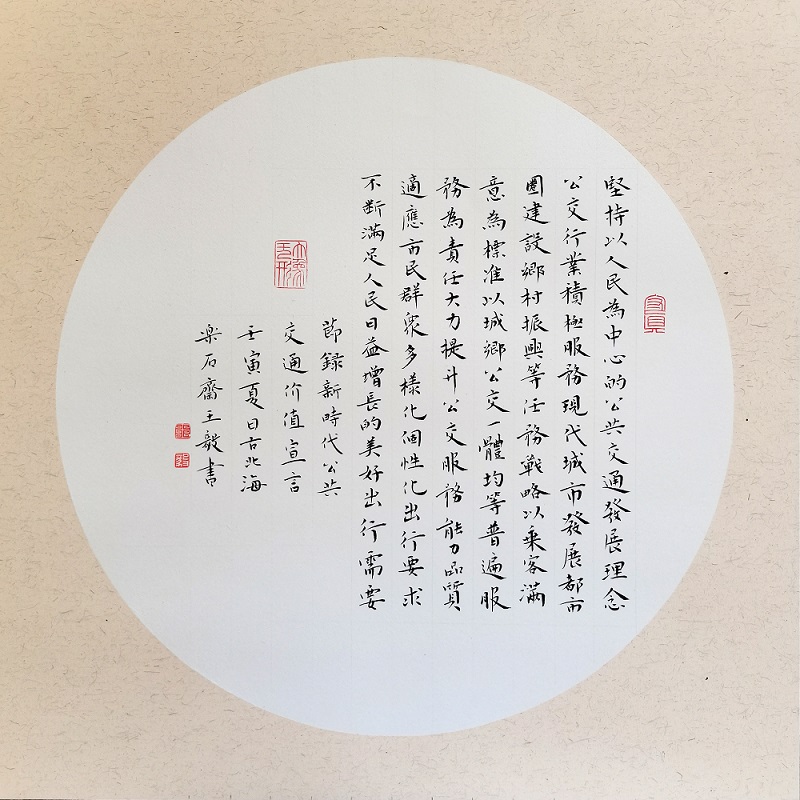 堅持以人民為中心的公共交通發展理念
公交行業積極服務現代城市發展都市
圈建設鄉村振興等任務戰略以乘客滿
意為標准以城鄉公交一體均等普遍服
務為責任大力提升公交服務能力品質
適應市民群衆多樣化個性化出行要求
不断滿足人民日益增長的美好出行需要
節録新時代公共
交通价值宣言
壬寅夏日古北海
樂石齋王毅書